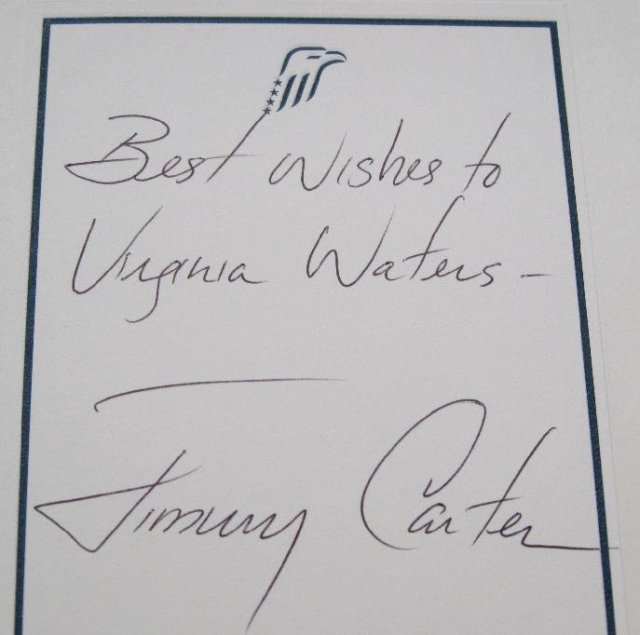 Best Wishes to
Virginia Waters –
Jimmy Carter